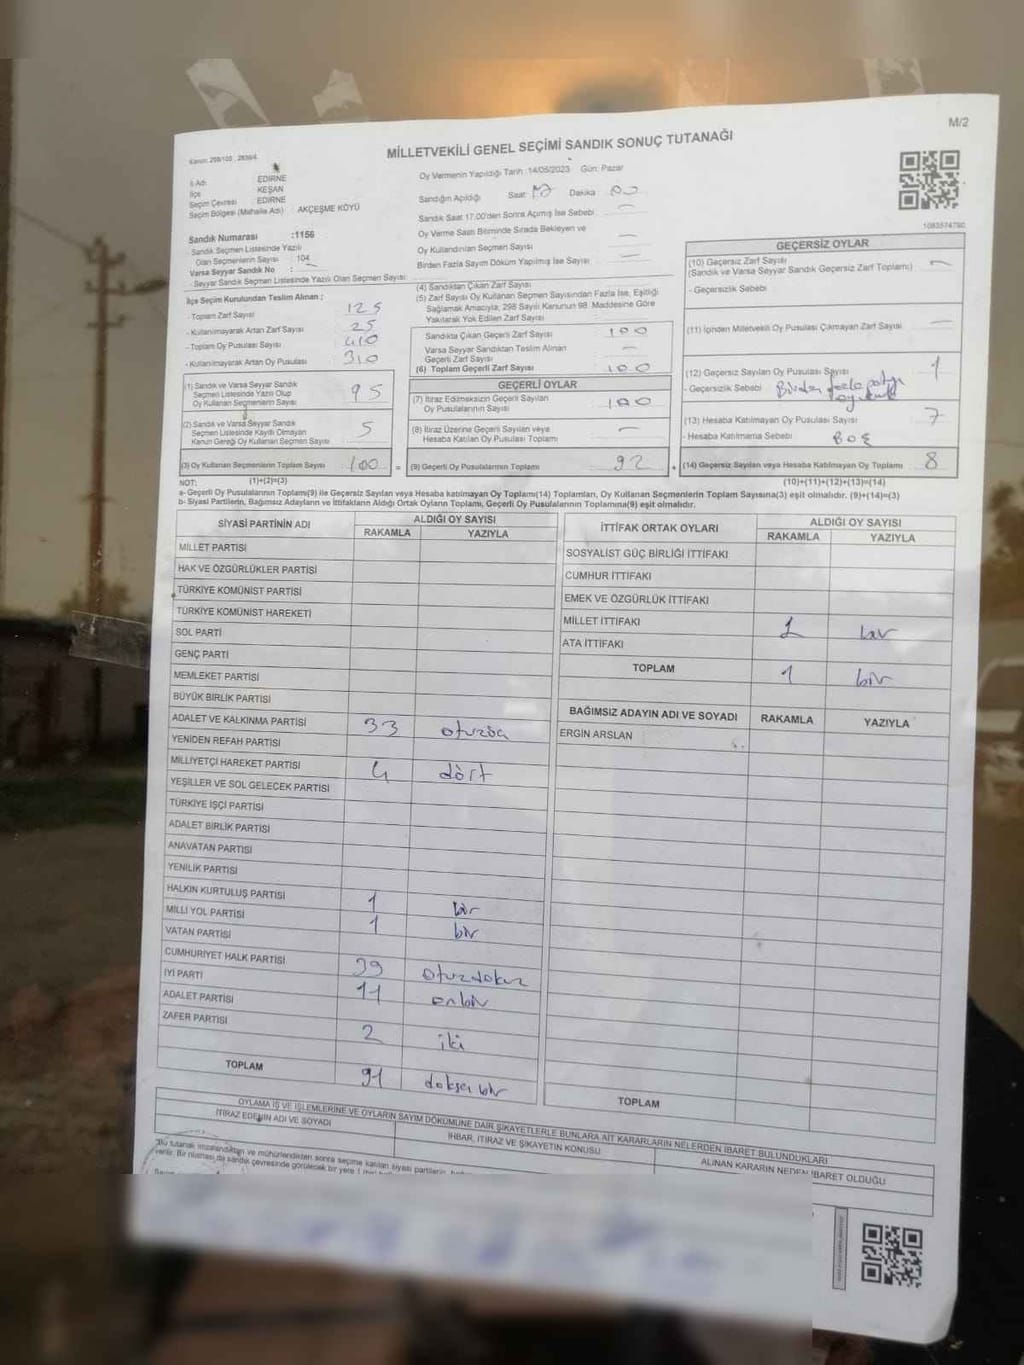 M/2
MİLLETVEKİLİ GENEL SEÇİMİ SANDIK SONUÇ TUTANAĞI
İl Adı EDİRNE
İlçe KEŞAN
Seçim Çevresi EDİRNE
Seçim Bölgesi (Mahalle Adı) AKÇEŞME KÖYÜ
Sandık Numarası :1156
- Sandık Seçmen Listesinde Yazılı
Olan Seçmenlerin Sayısı : 104
Varsa Seyyar Sandık No :
- Seyyar Sandık Seçmen Listesinde Yazılı Olan Seçmen Sayısı:
Oy Vermenin Yapıldığı Tarih :14/05/2023 Gün: Pazar
Sandığın Açıldığı Saat: 17 Dakika 00
Sandık Saat 17.00'den Sonra Açılmış İse Sebebi
Oy Verme Saati Bitiminde Sırada Bekleyen ve
Oy Kullandırılan Seçmen Sayısı
Birden Fazla Sayım Döküm Yapılmış İse Sayısı
1083574790
İlçe Seçim Kurulundan Teslim Alınan ;
- Toplam Zarf Sayısı 125
- Kullanılmayarak Artan Zarf Sayısı 25
- Toplam Oy Pusulası Sayısı 410
- Kullanılmayarak Artan Oy Pusulası 310
(1) Sandık ve Varsa Seyyar Sandık
Seçmen Listesinde Yazılı Olup
Oy Kullanan Seçmenlerin Sayısı 95
(2) Sandık ve Varsa Seyyar Sandık
Seçmen Listesinde Kayıtlı Olmayan
Kanun Gereği Oy Kullanan Seçmen Sayısı 5
(3) Oy Kullanan Seçmenlerin Toplam Sayısı 100
(1)+(2)=(3)
(4) Sandıktan Çıkan Zarf Sayısı
(5) Zarf Sayısı Oy Kullanan Seçmen Sayısından Fazla İse, Eşitliği
Sağlamak Amacıyla, 298 Sayılı Kanunun 98. Maddesine Göre
Yakılarak Yok Edilen Zarf Sayısı
Sandıkta Çıkan Geçerli Zarf Sayısı 100
Varsa Seyyar Sandıktan Teslim Alınan
Geçerli Zarf Sayısı
(6) Toplam Geçerli Zarf Sayısı 100
GEÇERLİ OYLAR
(7) İtiraz Edilmeksizin Geçerli Sayılan
Oy Pusulalarının Sayısı 100
(8) İtiraz Üzerine Geçerli Sayılan veya
Hesaba Katılan Oy Pusulası Toplamı
= (9) Geçerli Oy Pusulalarının Toplamı 92
GEÇERSİZ OYLAR
(10) Geçersiz Zarf Sayısı
(Sandık ve Varsa Seyyar Sandık Geçersiz Zarf Toplamı)
- Geçersizlik Sebebi
(11) İçinden Milletvekili Oy Pusulası Çıkmayan Zarf Sayısı
(12) Geçersiz Sayılan Oy Pusulası Sayısı 1
- Geçersizlik Sebebi Birden fazla partiye
(13) Hesaba Katılmayan Oy Pusulası Sayısı 7
- Hesaba Katılmama Sebebi BOŞ
+ (14) Geçersiz Sayılan veya Hesaba Katılmayan Oy Toplamı 8
(10)+(11)+(12)+(13)=(14)
NOT:
a- Geçerli Oy Pusulalarının Toplamı(9) ile Geçersiz Sayılan veya Hesaba katılmayan Oy Toplamı(14) Toplamları, Oy Kullanan Seçmenlerin Toplam Sayısına(3) eşit olmalıdır. (9)+(14)=(3)
b- Siyasi Partilerin, Bağımsız Adayların ve İttifakların Aldığı Ortak Oyların Toplamı, Geçerli Oy Pusulalarının Toplamına(9) eşit olmalıdır.
SİYASİ PARTİNİN ADI ALDIĞI OY SAYISI
RAKAMLA YAZIYLA
MİLLET PARTİSİ
HAK VE ÖZGÜRLÜKLER PARTİSİ
TÜRKİYE KOMÜNİST PARTİSİ
TÜRKİYE KOMÜNİST HAREKETİ
SOL PARTİ
GENÇ PARTİ
MEMLEKET PARTİSİ
BÜYÜK BİRLİK PARTİSİ
ADALET VE KALKINMA PARTİSİ 33
YENİDEN REFAH PARTİSİ
MİLLİYETÇİ HAREKET PARTİSİ 4 dört
YEŞİLLER VE SOL GELECEK PARTİSİ
TÜRKİYE İŞÇİ PARTİSİ
ADALET BİRLİK PARTİSİ
ANAVATAN PARTİSİ
YENİLİK PARTİSİ
HALKIN KURTULUŞ PARTİSİ 1 bir
MİLLİ YOL PARTİSİ 1 bir
VATAN PARTİSİ
CUMHURİYET HALK PARTİSİ 39 otuzdokuz
İYİ PARTİ 11 onbir
ADALET PARTİSİ
ZAFER PARTİSİ 2 iki
TOPLAM 91 doksan bir
İTTİFAK ORTAK OYLARI ALDIĞI OY SAYISI
RAKAMLA YAZIYLA
SOSYALİST GÜÇ BİRLİĞİ İTTİFAKI
CUMHUR İTTİFAKI
EMEK VE ÖZGÜRLÜK İTTİFAKI
MİLLET İTTİFAKI 1 bir
ATA İTTİFAKI
TOPLAM 1 bir
BAĞIMSIZ ADAYIN ADI VE SOYADI RAKAMLA YAZIYLA
ERGİN ARSLAN
TOPLAM
OYLAMA İŞ VE İŞLEMLERİNE VE OYLARIN SAYIM DÖKÜMÜNE DAİR ŞİKAYETLERLE BUNLARA AİT KARARLARIN NELERDEN İBARET BULUNDUKLARI
İTİRAZ EDENİN ADI VE SOYADI İHBAR, İTİRAZ VE ŞİKAYETİN KONUSU ALINAN KARARIN NEDEN İBARET OLDUĞU
"Bu tutanak imzalandıktan ve mühürlendikten sonra seçime katılan siyasi partilerin,
verilir. Bir nüshası da sandık çevresinde görülecek bir yere